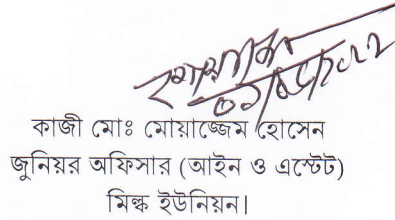 কাজী মোঃ মোয়াজ্জেম হোসেন
জুনিয়র অফিসার (আইন ও এস্টেট)
মিল্ক ইউনিয়ন।